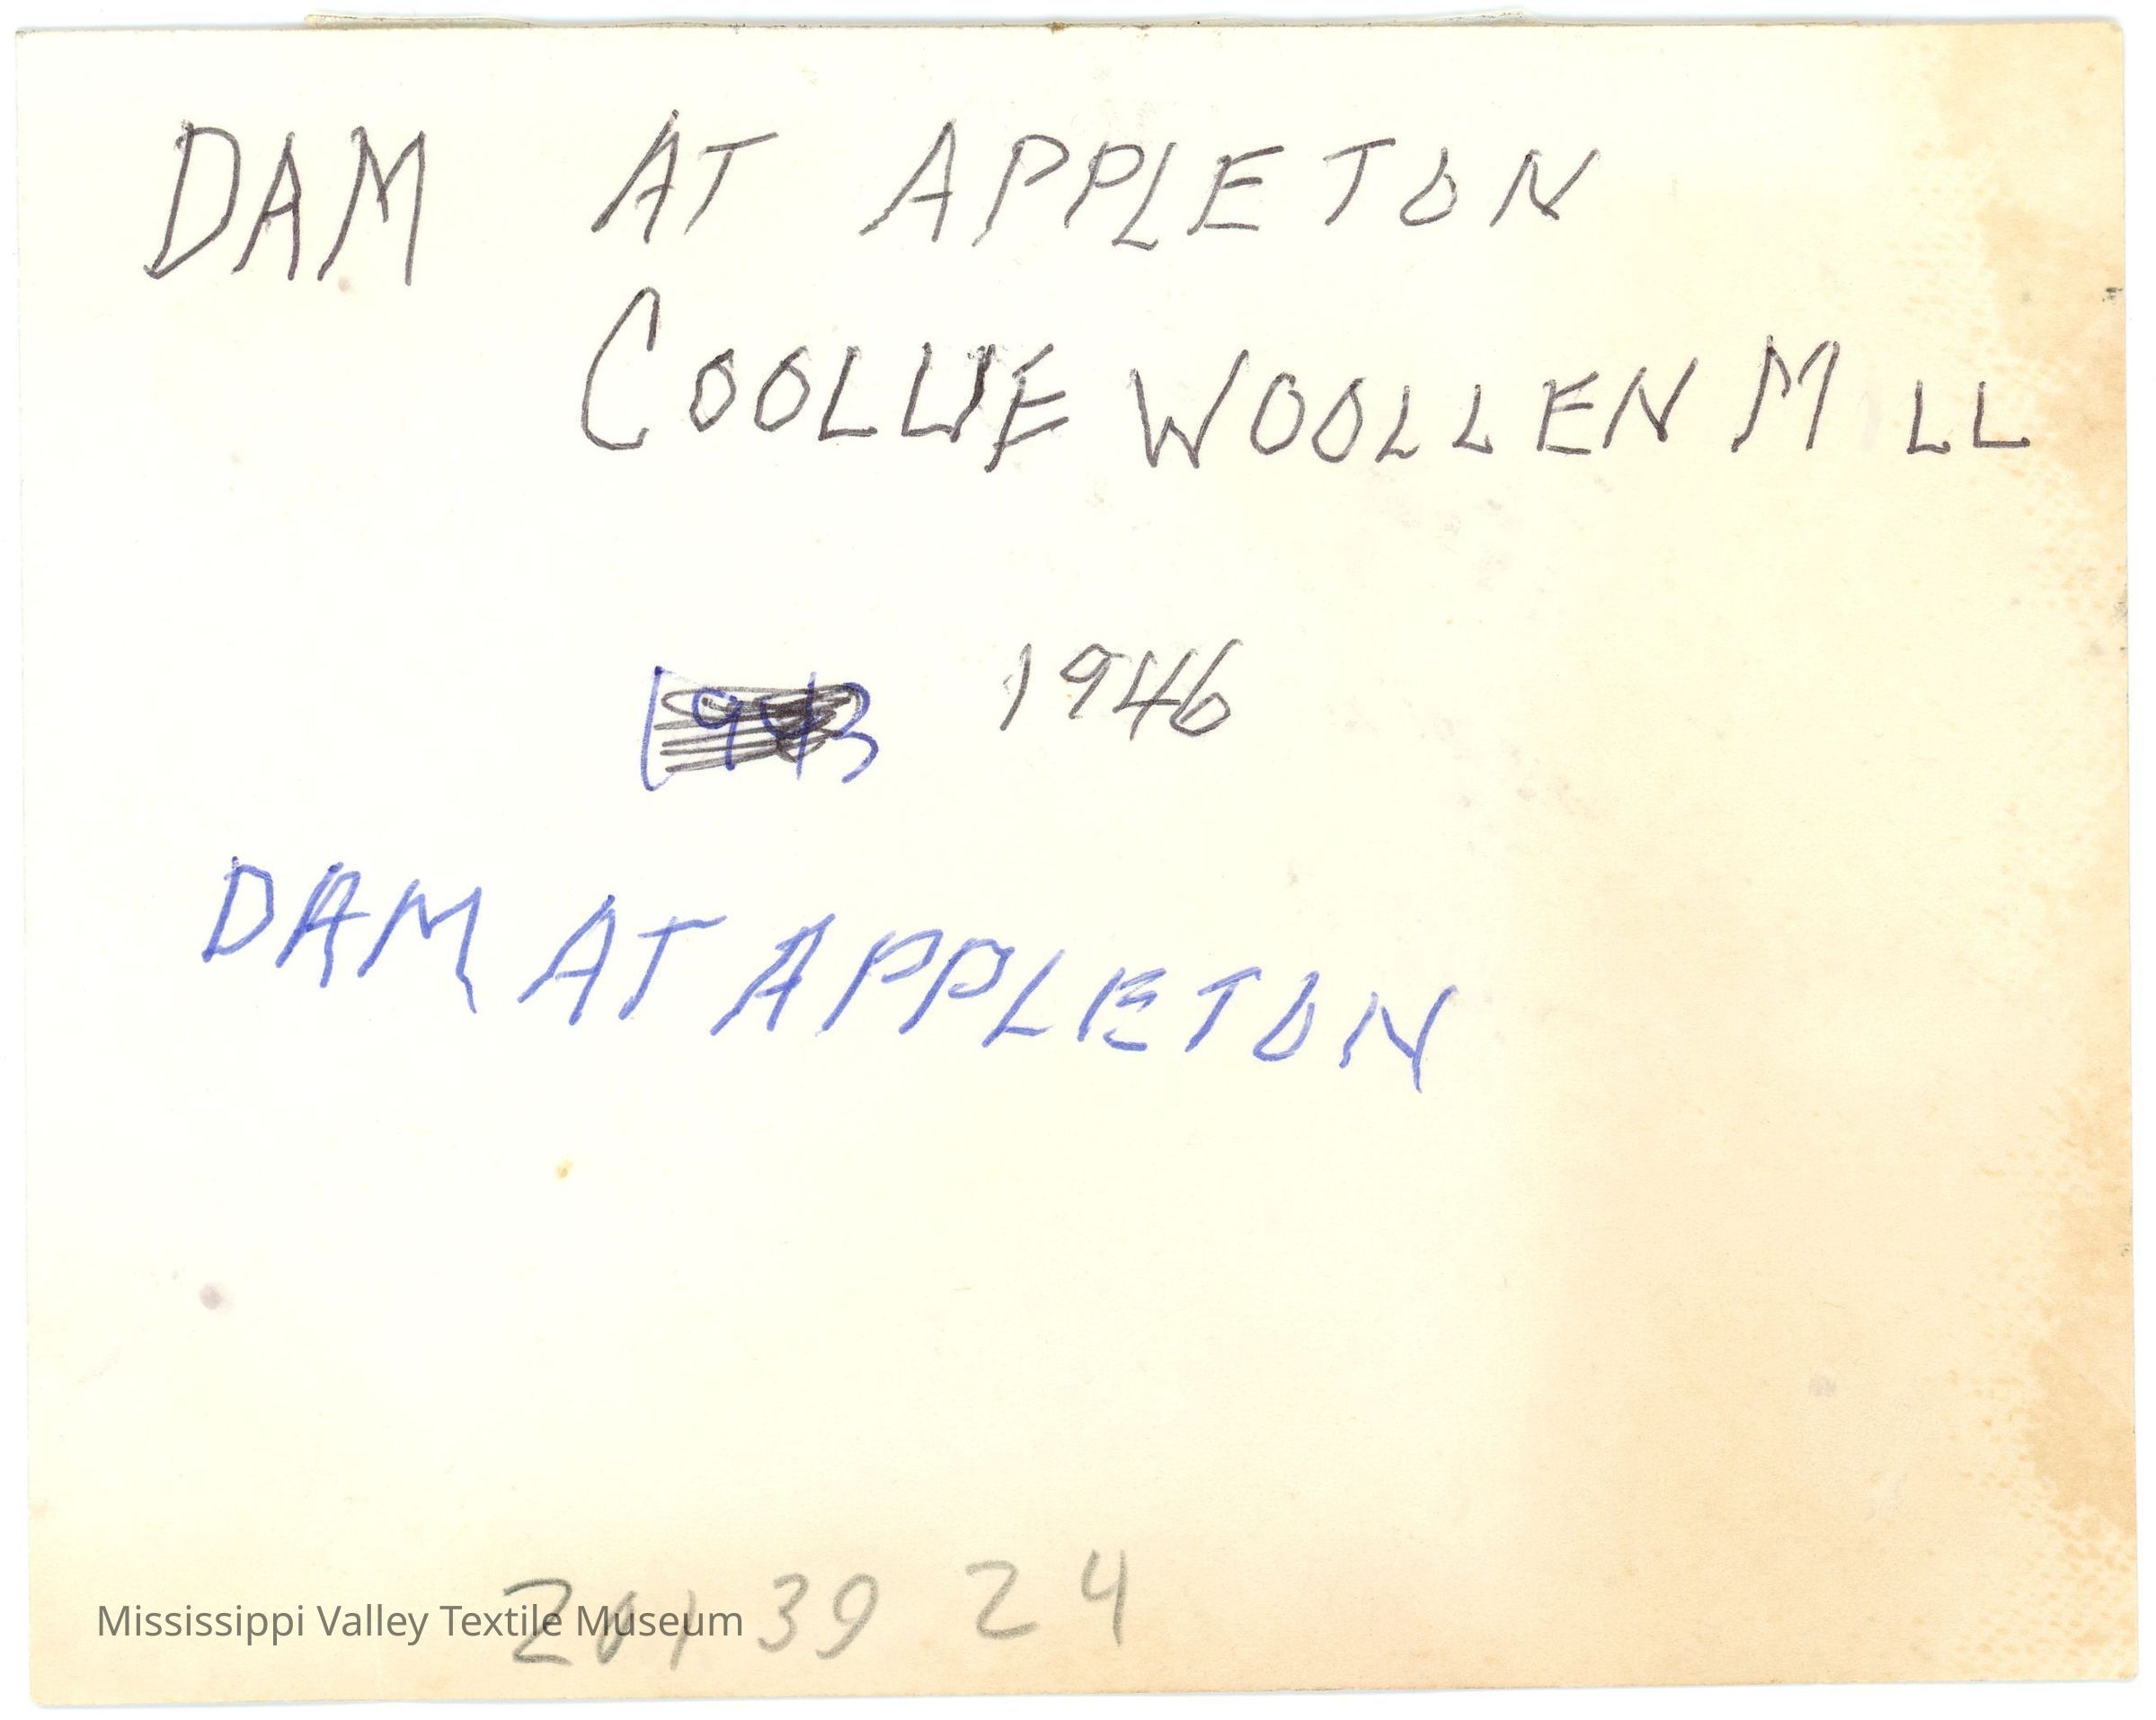 DAM AT APPLETON
COOLLIE WOOLLEN MILL
1943 1946
DAM AT APPLETON
201 39 24
Mississippi Valley Textile Museum